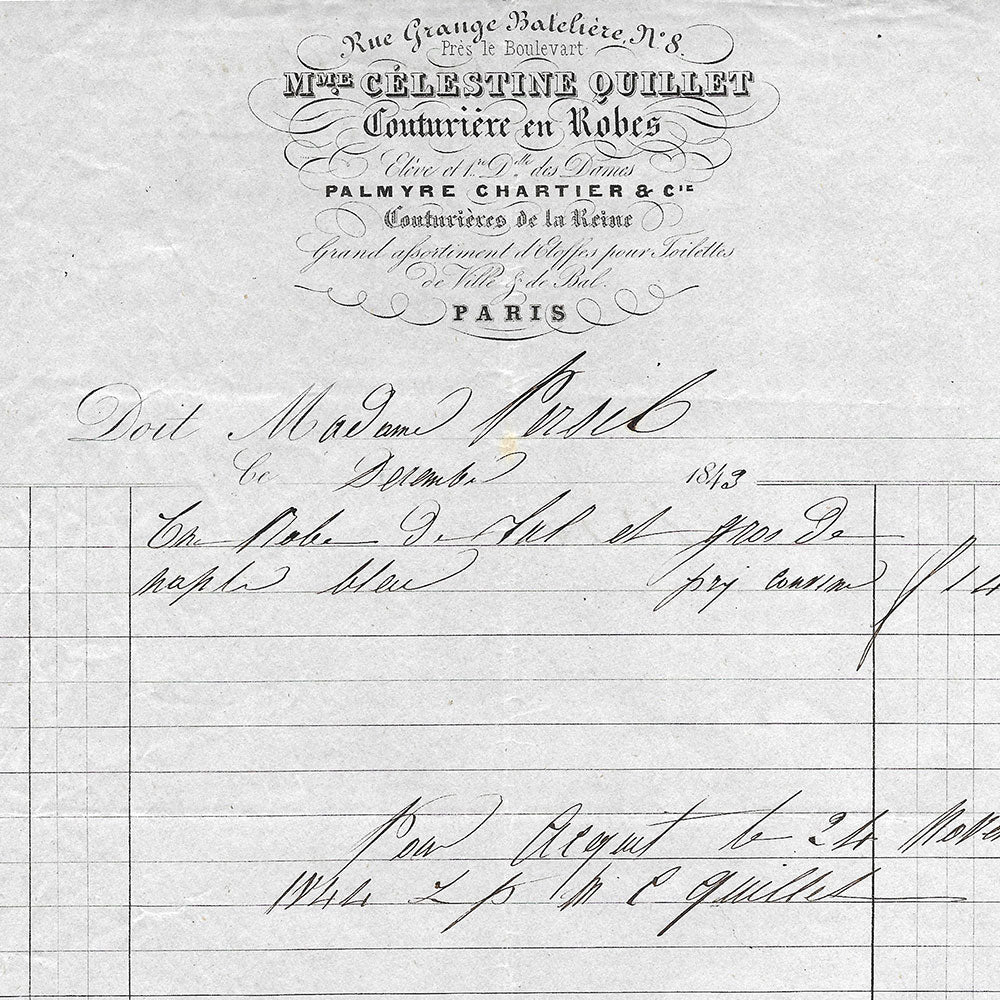 Rue Grange Batelière, N° 8.
Près le Boulevart
MME CÉLESTINE QUILLET
Couturière en Robes
Elève et 1re Dlle des Dames
PALMYRE CHARTIER & CIE
Couturières de la Reine
Grand assortiment d'Etoffes pour Toilettes
de Ville & de Bal.
PARIS
Doit Madame Persil
Ce Decembre 1843
Une Robe de Tul et gros de
naple bleu prix convenu f 14
Pour Acquit le 24 Nove
1844 p M C Quillet